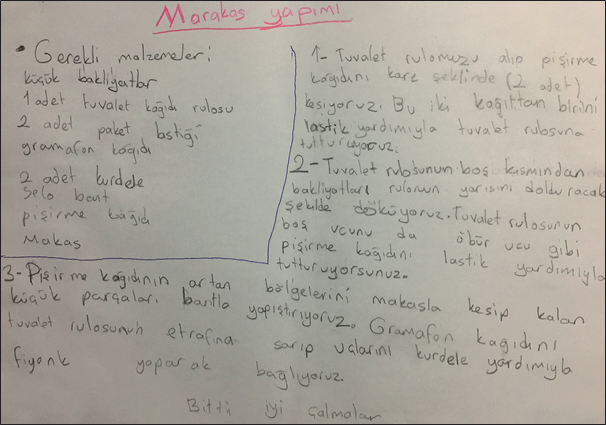 Marakas yapımı
• Gerekli malzemeler:
küçük bakliyatlar
1 adet tuvalet kağıdı rulosu
2 adet paket lastiği
gramafon kağıdı
2 adet kurdele
selo bant
pişirme kağıdı
Makas
1- Tuvalet rulomuzu alıp pişirme
kağıdını kare şeklinde (2 adet)
kesiyoruz. Bu iki kağıttan birini
lastik yardımıyla tuvalet rulosuna
tutturuyoruz.
2- Tuvalet rulosunun boş kısmından
bakliyatları rulonun yarısını dolduracak
şekilde döküyoruz. Tuvalet rulosunun
boş ucunu da öbür ucu gibi
pişirme kağıdını lastik yardımıyla
tutturuyorsunuz.
3- Pişirme kağıdının artan bölgelerini makasla kesip kalan
küçük parçaları bantla yapıştırıyoruz. Gramafon kagıdını
tuvalet rulosunun etrafına sarıp uçlarını kurdele yardımıyla
fiyonk yaparak bağlıyoruz.
Bitti iyi çalmalar